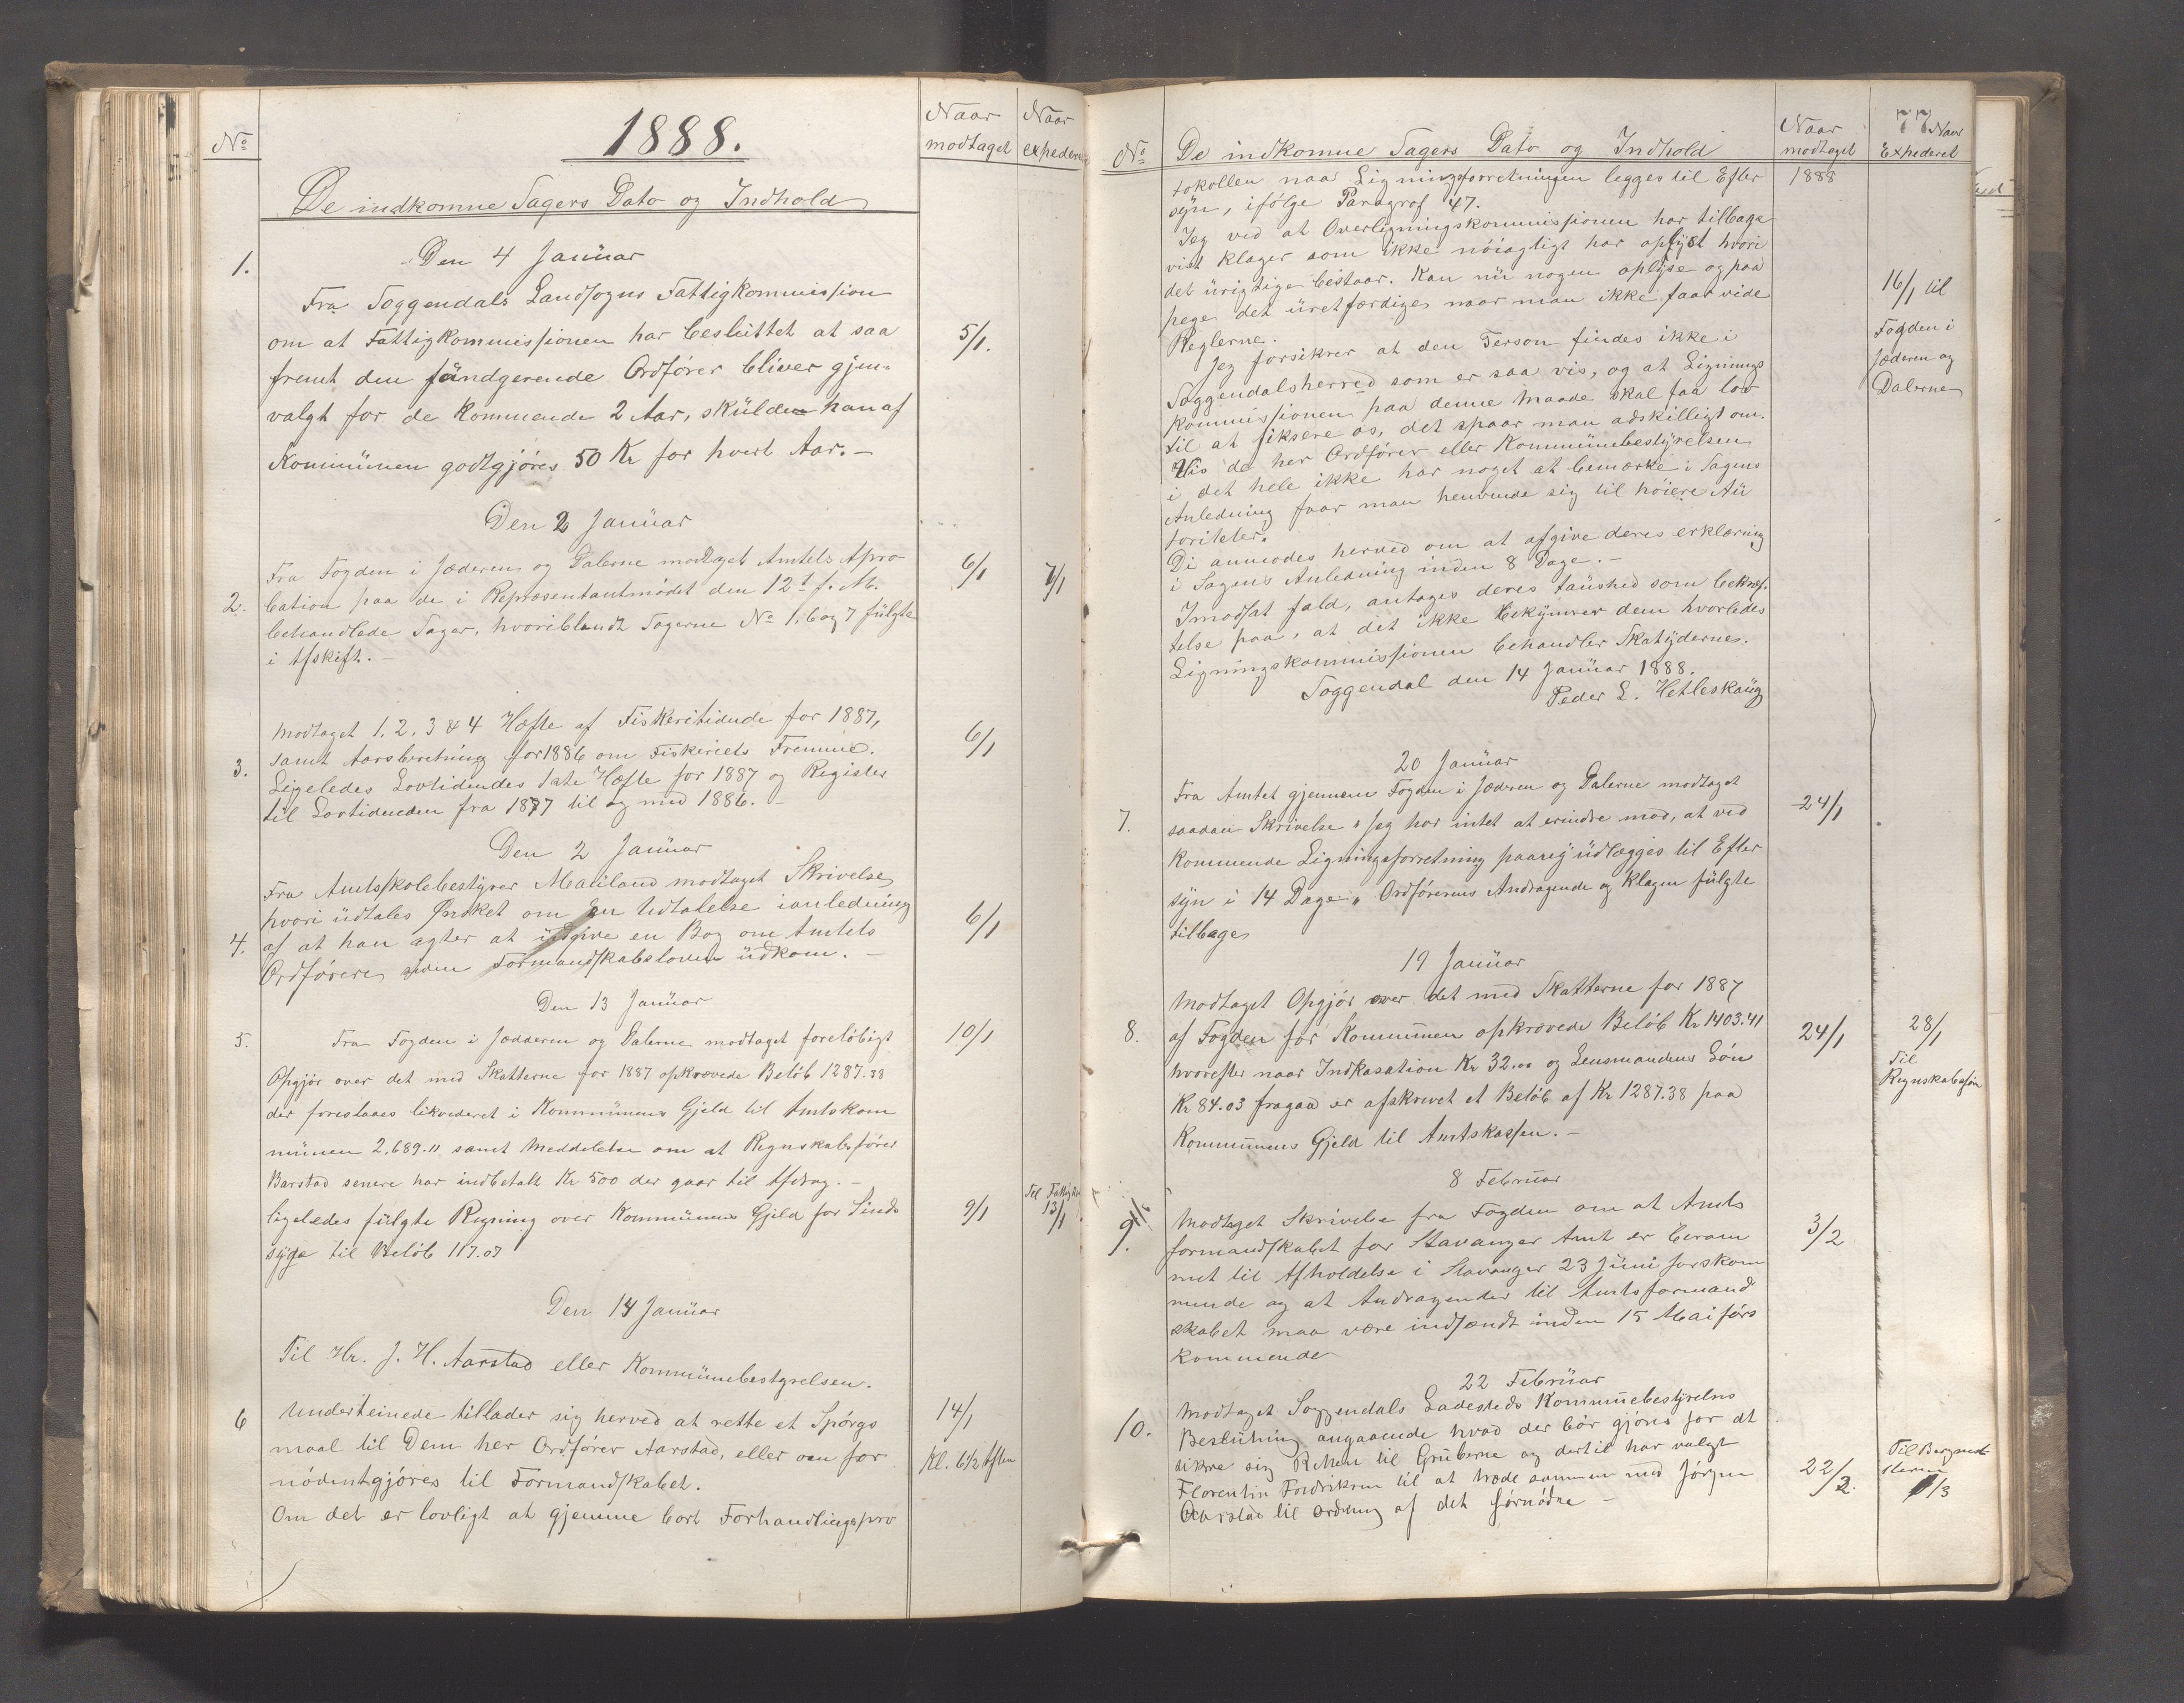 1888.
No
De indkomne Sagers Dato og Indhold
Naar modtaget
Naar expederet
1.
Den 4 Januar
Fra Soggendals Landsogns Fattigkommission
om at Fattigkommissionen har besluttet at saa
fremt den fundgerende Ordfører bliver gjen-
valgt for de kommende 2 Aar, skulde han af
Kommunen godtgjøres 50 Kr for hvert Aar. –
5/1.
Den 2 Januar
2.
Fra Fogden i Jæderen og Dalerne modtaget Amtets Apro
bation paa de i Repræsentantmødet den 12t f. M.
behandlede Sager, hvoriblandt Sagerne No 1, 6 og 7 fulgte
i Afskift. –
6/1
7/1
3.
Modtaget 1. 2. 3 & 4 Hæfte af Fiskeritidende for 1887,
samt Aarsberetning for 1886 om Fiskeriets Fremme.
Ligeledes Lovtidendes 1ste Hæfte for 1887 og Register
til Lovtidenden fra 1877 til og med 1886. –
6/1
Den 2 Januar
4.
Fra Amtsskolebestyrer Mauland modtaget Skrivelse
hvori udtales Ønsket om en Udtalelse ianledning
af at han agter at udgive en Bog om Amtets
Ordførere siden Formandskabsloven udkom. –
6/1
Den 13 Januar
5.
Fra Fogden i Jædderen og Dalerne modtaget foreløbigt
Opgjør over det med Skatterne for 1887 opkrævede Beløb 1287.38
der foreslaaes likvideret i Kommunens Gjeld til Amtskom
munen 2.689.11 samt Meddelelse om at Regnskabsfører
Barstad senere har indbetalt Kr 500 der gaar til Afdrag. –
ligeledes fulgte Regning over Kommunens Gjeld for Sinds
syge til Beløb 117.07
10/1
9/1
13/1
Den 14 Januar
Til Hr. J. H. Aarstad eller Kommunebestyrelsen.
6
Underteinede tillader sig herved at rette et Spørgs
maal til Dem her Ordfører Aarstad, eller om for
nødentgjøres til Formandskabet.
Om det er lovligt at gjemme bort Forhandlingspro
14/1
Kl. 6 1/2 Aften
77
No
De indkomne Sagers Dato og Indhold
Naar modtaget
Naar Expederet
1888
tokollen naa Ligningsforretningen legges til Efter
syn, ifølge Paragrof 47.
Jeg ved at Overligningskommissionen har tilbage
vist Klager som ikke nøiagtigt har oplyst hvori
det urigtige bestaar. Kan nu nogen oplyse og paa
pege det uretfærdige naar man ikke faar vide
Reglerne.
Jeg forsikrer at den Person findes ikke i
Soggendalsherred som er saa vis, og at Lignings
kommissionen paa denne Maade skal faa lov
til at fiksere os, det spaar man adskilligt om.
Vis de her Ordfører eller Kommunebestyrelsen
i det hele ikke har noget at bemærke i Sagens
Anledning faar man henvende sig til høiere Au
toriteter.
Di anmodes herved om at afgive deres erklæring
i Sagens Anledning inden 8 Dage. –
Imodsat fald, antages deres taushed som bekræf-
telse paa, at det ikke bekymrer dem hvorledes
Ligningskommissionen behandler Skatyderne.
Soggendal den 14 Januar 1888.
Peder L. Hetleskaug
16/1 til
Fogden i
Jæderen og
Dalerne
20 Januar
7.
Fra Amtet gjennem Fogden i Jæderen og Dalerne modtaget
saadan Skrivelse "Jeg har intet at erindre mod, at ved
kommende Ligningsforretning paany udlægges til Efter
syn i 14 Dage" Ordførerens Andragende og Klagen fulgte
tilbage
24/1
19 Januar
8.
Modtaget Opgjør over det med Skatterne for 1887
af Fogden for Kommunen opkrævede Beløb Kr 1403.41
hvorefter naar Indkasation Kr 32.00 og Lensmandens Løn
Kr 84.03 fragaar er afskrevet et Beløb af Kr 1287.38 paa
Kommunens Gjeld til Amtskassen. –
24/1
28/1
Til
Regnskabsfør
8 Februar
9.
Modtaget Skrivelse fra Fogden om at Amts
formandskabet for Stavanger Amt er beram
met til Afholdelse i Stavanger 23 Juni førskom
mende og at Andragender til Amtsformand
skabet maa være indsendt inden 15 Mai førs
kommende
3/2
22 Februar
10.
Modtaget Soggendals Ladesteds Kommunebestyrelses
Beslutning angaaende hvad der bør gjøres for at
sikre sig Retten til Gruberne og dertil har valgt
Florentin Fredriksen til at træde sammen med Jørgen
Aarstad til ordning af det fornødne –
22/2.
Til Bergmesteren
1/3